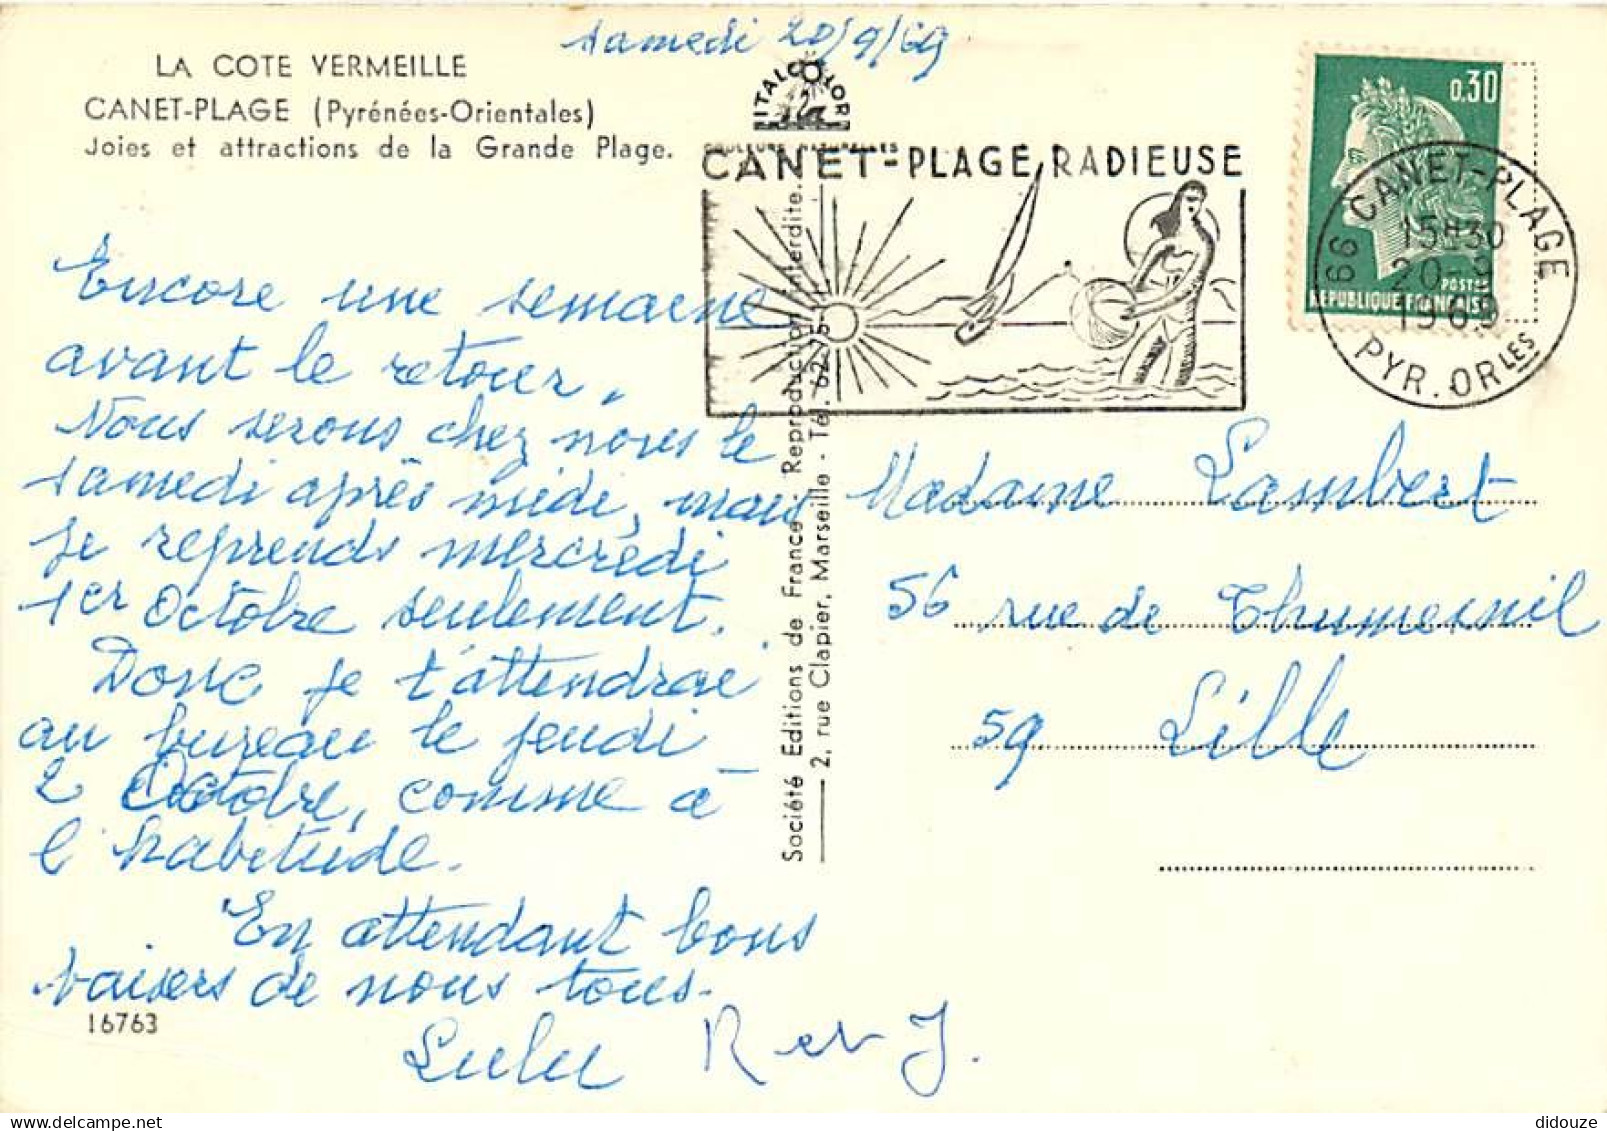 samedi 20/9/69
LA COTE VERMEILLE
CANET-PLAGE (Pyrénées-Orientales)
Joies et attractions de la Grande Plage.
ITALCOLOR
COULEURS NATURELLES
CANET-PLAGE RADIEUSE
0,30
POSTES
REPUBLIQUE FRANÇAISE
66 CANET-PLAGE
15H30
20-9
1969
PYR. ORLES
Encore une semaine
avant le retour.
Nous serons chez nous le
samedi après midi, mais
je reprends mercredi
1er Octobre seulement.
Donc je t'attendrai
au bureau le jeudi
2 Octobre, comme à
l'habitude.
En attendant bons
baisers de nous tous.
Lulu R et J.
16763
Société Editions de France. Reproduction interdite.
2, rue Clapier, Marseille - Tél. 62-75-
Madame Lambert
56 rue de Thumesnil
59 Lille
didouze